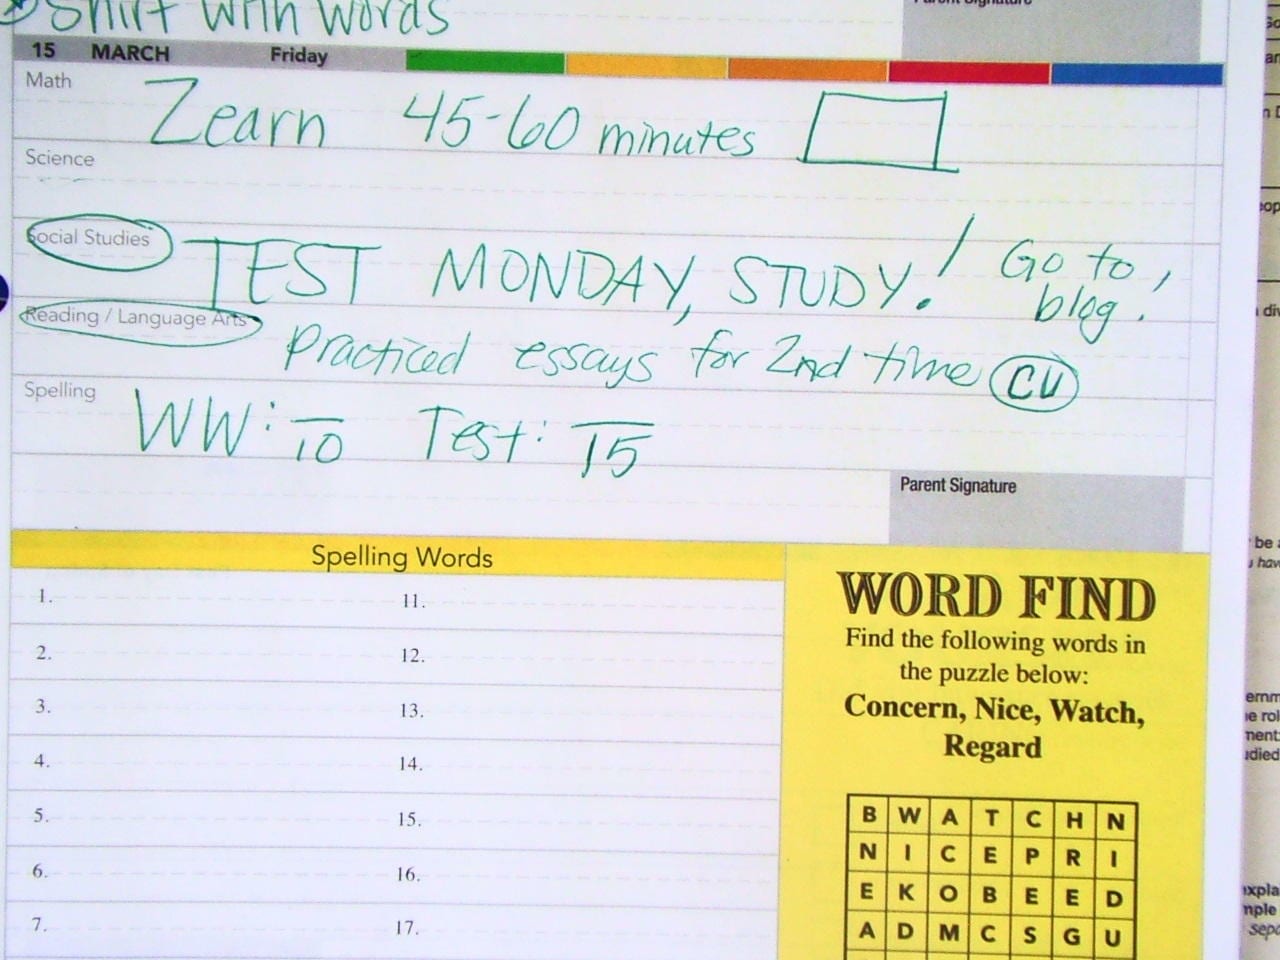 Shirt with words
Parent Signature
15 MARCH Friday
Math
Zearn 45-60 minutes
Science
Social Studies
TEST MONDAY, STUDY! Go to
blog!
Reading / Language Arts
Practiced essays for 2nd time CU
Spelling
WW: /10 Test: /15
Parent Signature
Spelling Words
1. 11.
2. 12.
3. 13.
4. 14.
5. 15.
6. 16.
7. 17.
WORD FIND
Find the following words in
the puzzle below:
Concern, Nice, Watch,
Regard
B W A T C H N
N I C E P R I
E K O B E E D
A D M C S G U
be a